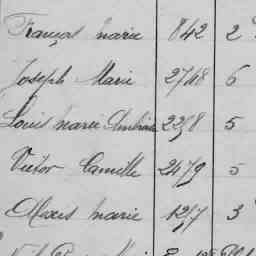 François marie 842 2
Joseph Marie 2748 6
Louis marie Ambroise 2258 5
Victor Camille 2479 5
Alexis marie 1257 3